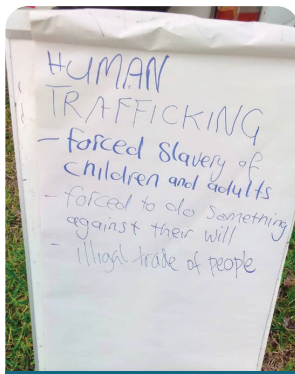 HUMAN
TRAFFICKING
- forced Slavery of
children and adults
- forced to do Something
against their will
- illigal trade of people